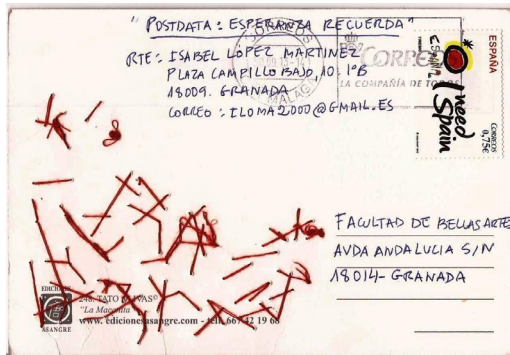 "POSTDATA: ESPERANZA RECUERDA"
RTE: ISABEL LÓPEZ MARTINEZ
PLAZA CAMPILLO BAJO, 10. 1ºB
18009. GRANADA
CORREO: ILOMA2000@GMAIL.ES
CORREOS
MALAGA
LA COMPAÑÍA DE TODOS
ESPAÑA
I need
Spain
CORREOS
0,75€
FACULTAD DE BELLAS ARTES
AVDA ANDALUCIA S/N
18014- GRANADA
EDICIONES
ASANGRE
248. TATO
"La
www.edicionesasangre.com - telf. 667 42 19 68